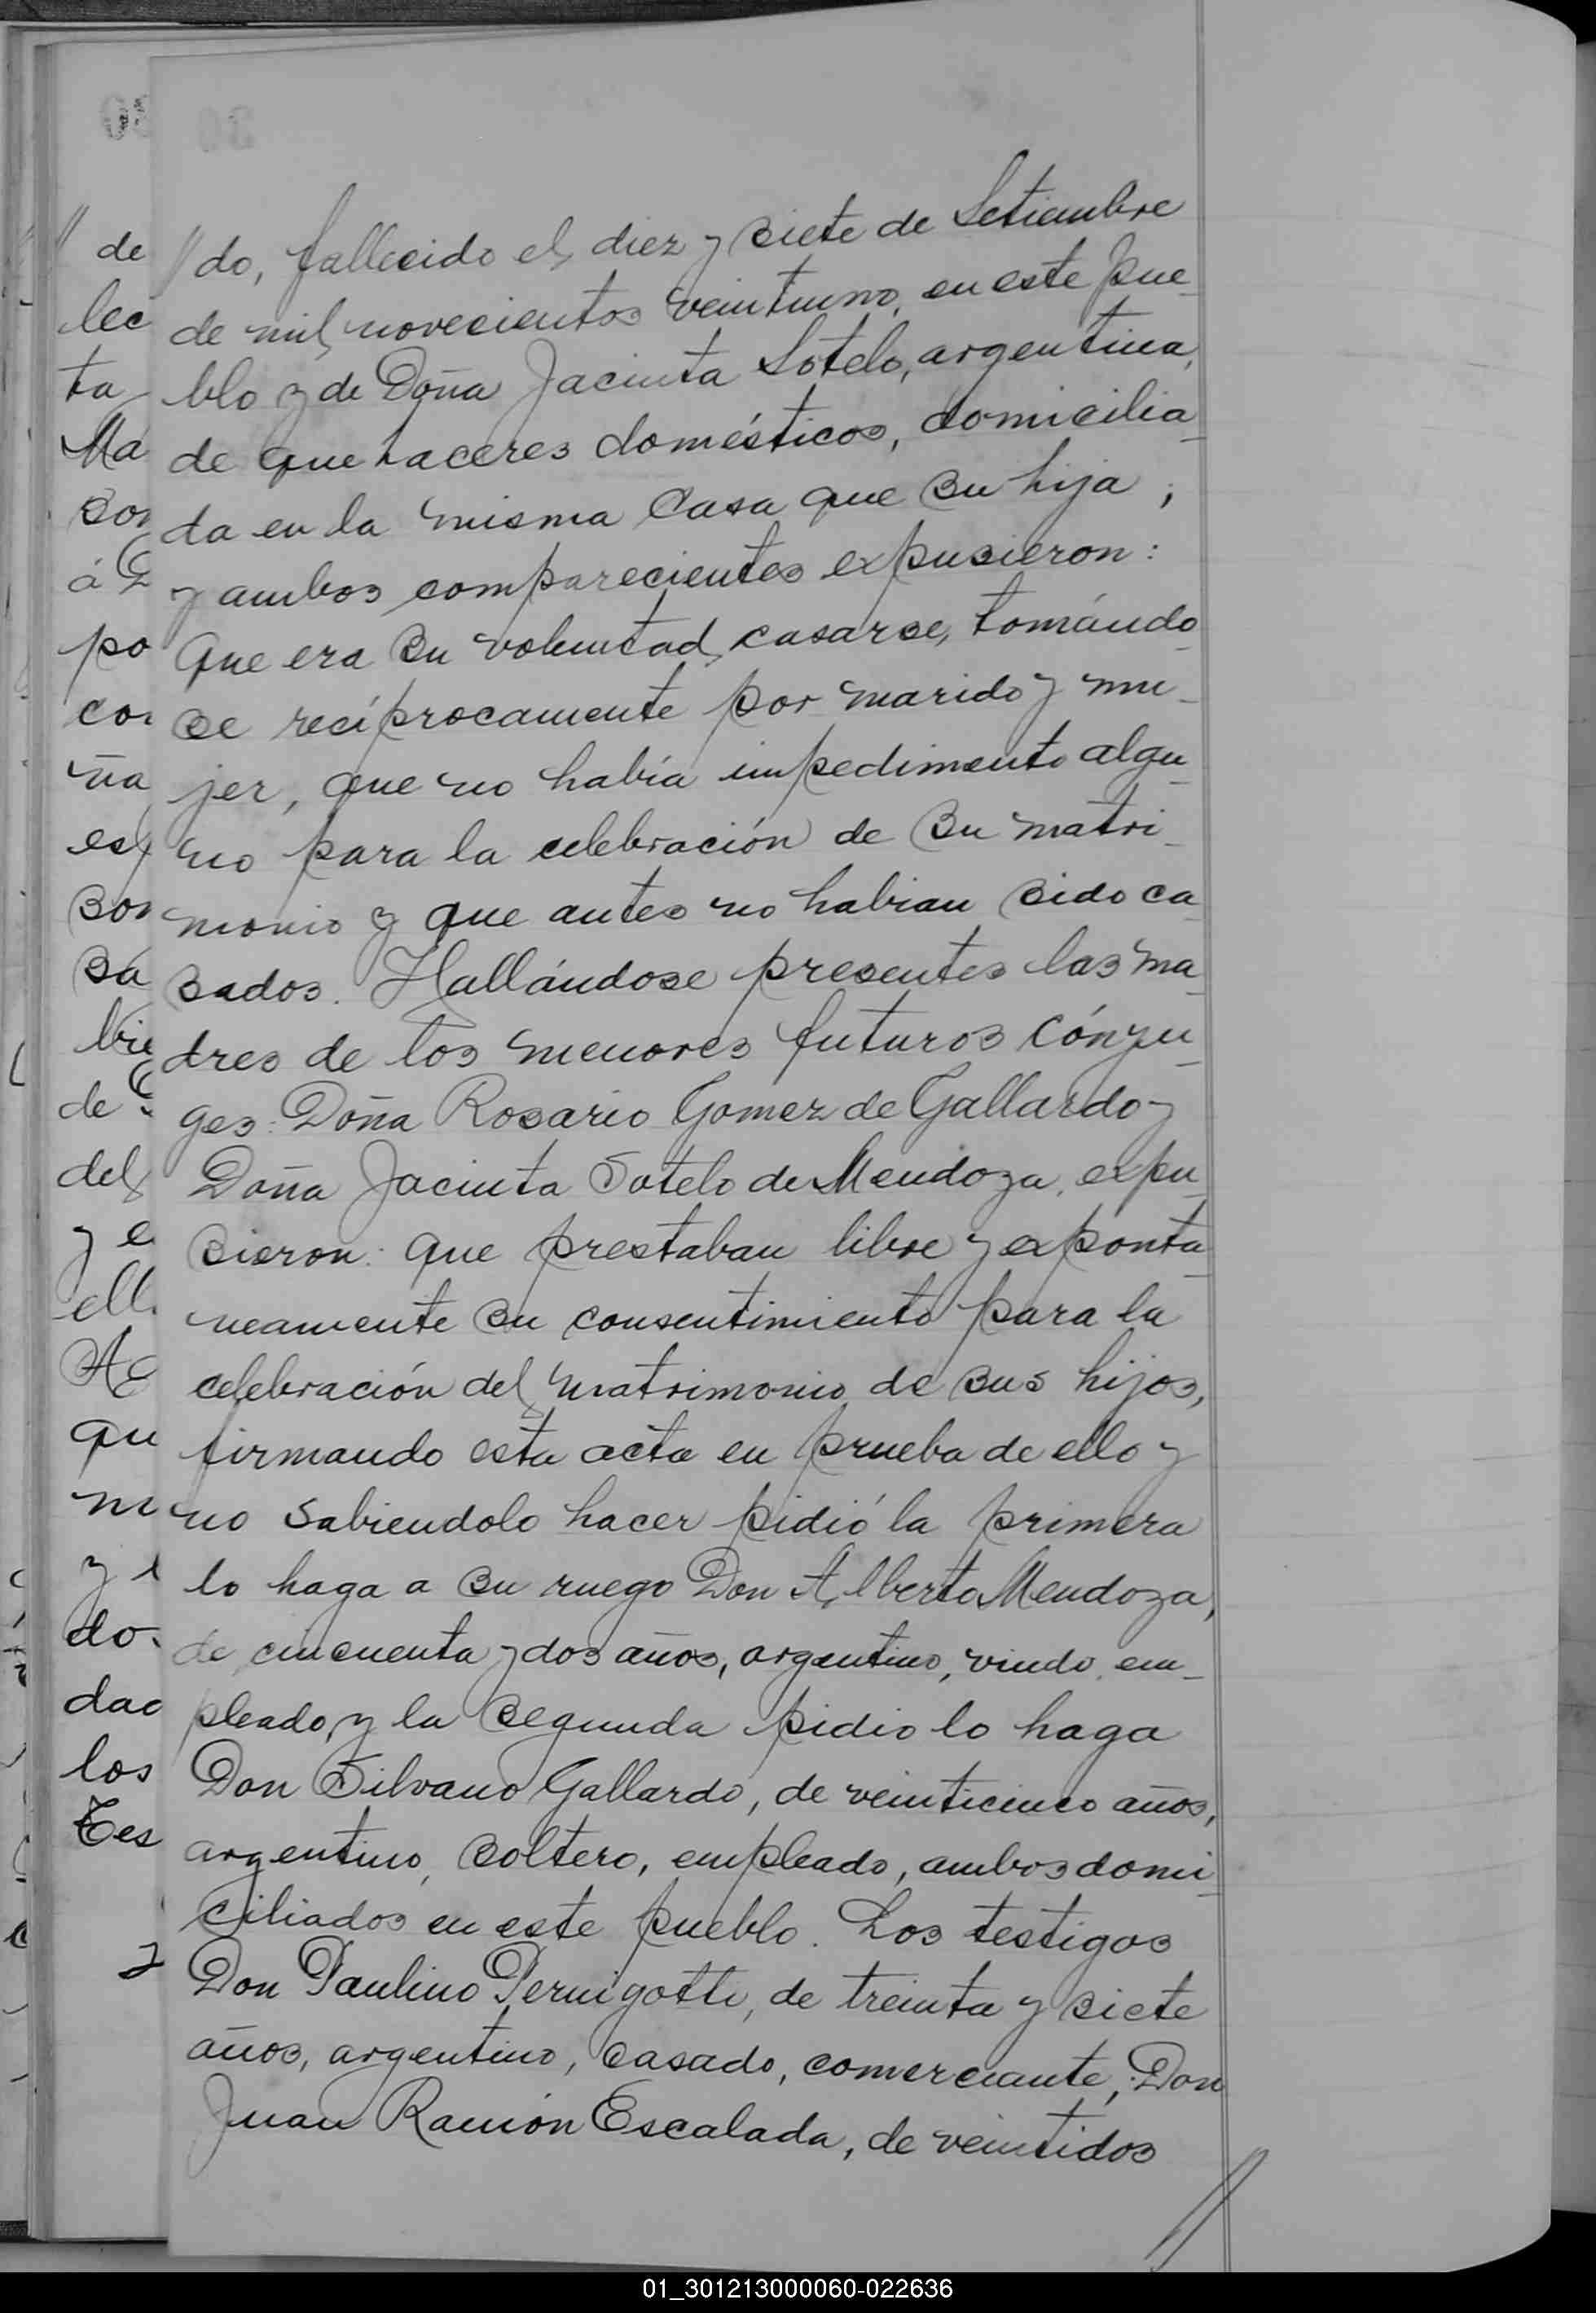 //do, fallecido el diez y siete de Setiembre
de mil novecientos veintiuno, en este pue-
blo y de Doña Jacinta Sotelo, argentina,
de que haceres domésticos, domicilia-
da en la misma Casa que su hija;
y ambos comparecientes expusieron:
Que era su voluntad casarse, tomándo-
se recíprocamente por marido y mu-
jer, que no había impedimento algu-
no para la celebración de su matri-
monio y que antes no habian sido ca-
sados. Hallándose presentes las ma-
dres de los menores futuros cónyu-
ges: Doña Rosario Gomez de Gallardo y
Doña Jacinta Sotelo de Mendoza, expu-
sieron: que prestaban libre y exponta-
neamente su consentimiento para la
celebración del matrimonio de sus hijos,
firmando esta acta en prueba de ello y
no sabiendolo hacer pidió la primera
lo haga a su ruego Don Alberto Mendoza,
de cincuenta y dos años, argentino, viudo, em-
pleado, y la segunda pidio lo haga
Don Silvano Gallardo, de veinticinco años,
argentino, soltero, empleado, ambos domi-
ciliados en este pueblo. Los testigos
Don Paulino Pernigotti, de treinta y siete
años, argentino, casado, comerciante, Don
Juan Ramón Escalada, de veintidos
//
de
lec
ta
Ma
son
á
po
con
ña
esp
son
sa
brie
de
del
y e
ell
Ac
qu
m
y
do
dad
los
Tes
01_301213000060-022636